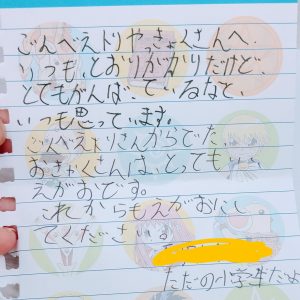 ごんべえトリやっきょくさんへ.
いつも、とおりがかりだけど、
とてもがんばっているなと、
いつも思っています。
ごんべえトリさんからでた、
おきゃくさんは、とっても
えがおです。
これからもえがおにし
てくださいね
ただの小学生だよ